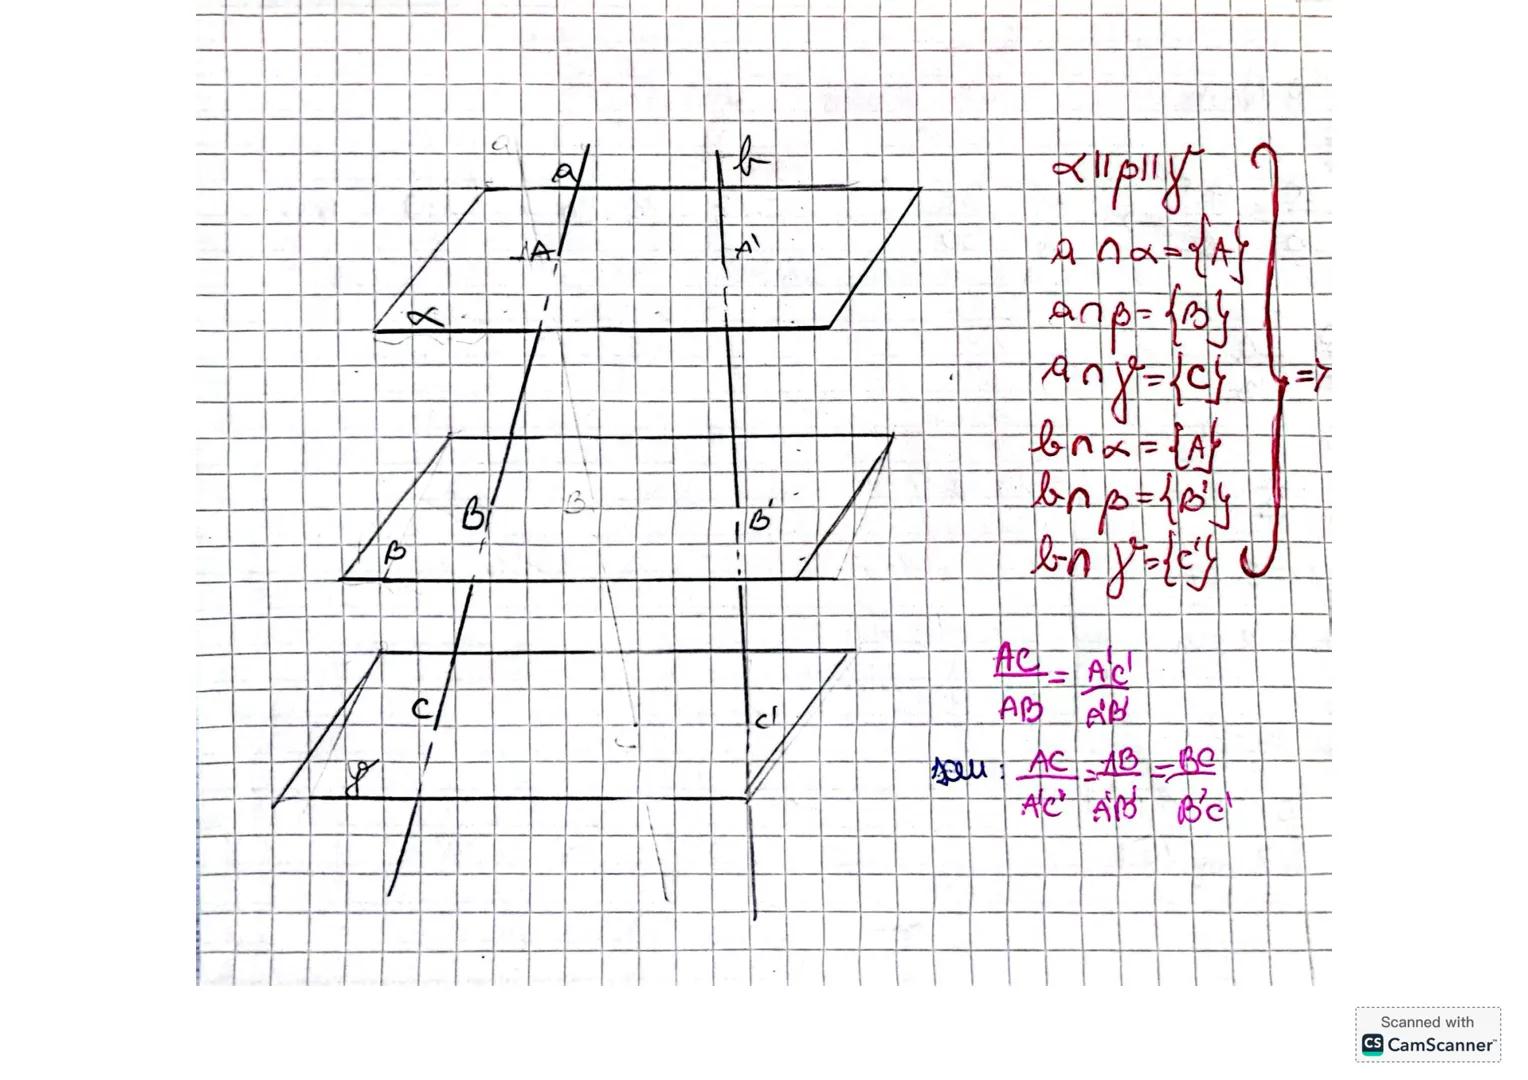 a
a
b
A
A'
α
B
B
B'
β
C
C'
γ
α || β || γ
a ∩ α = {A}
a ∩ β = {B}
a ∩ γ = {C}
=>
b ∩ α = {A}
b ∩ β = {B'}
b ∩ γ = {C'}
AC/AB = A'C'/A'B'
sau: AC/A'C' = AB/A'B' = BC/B'C'
Scanned with
CS CamScanner™